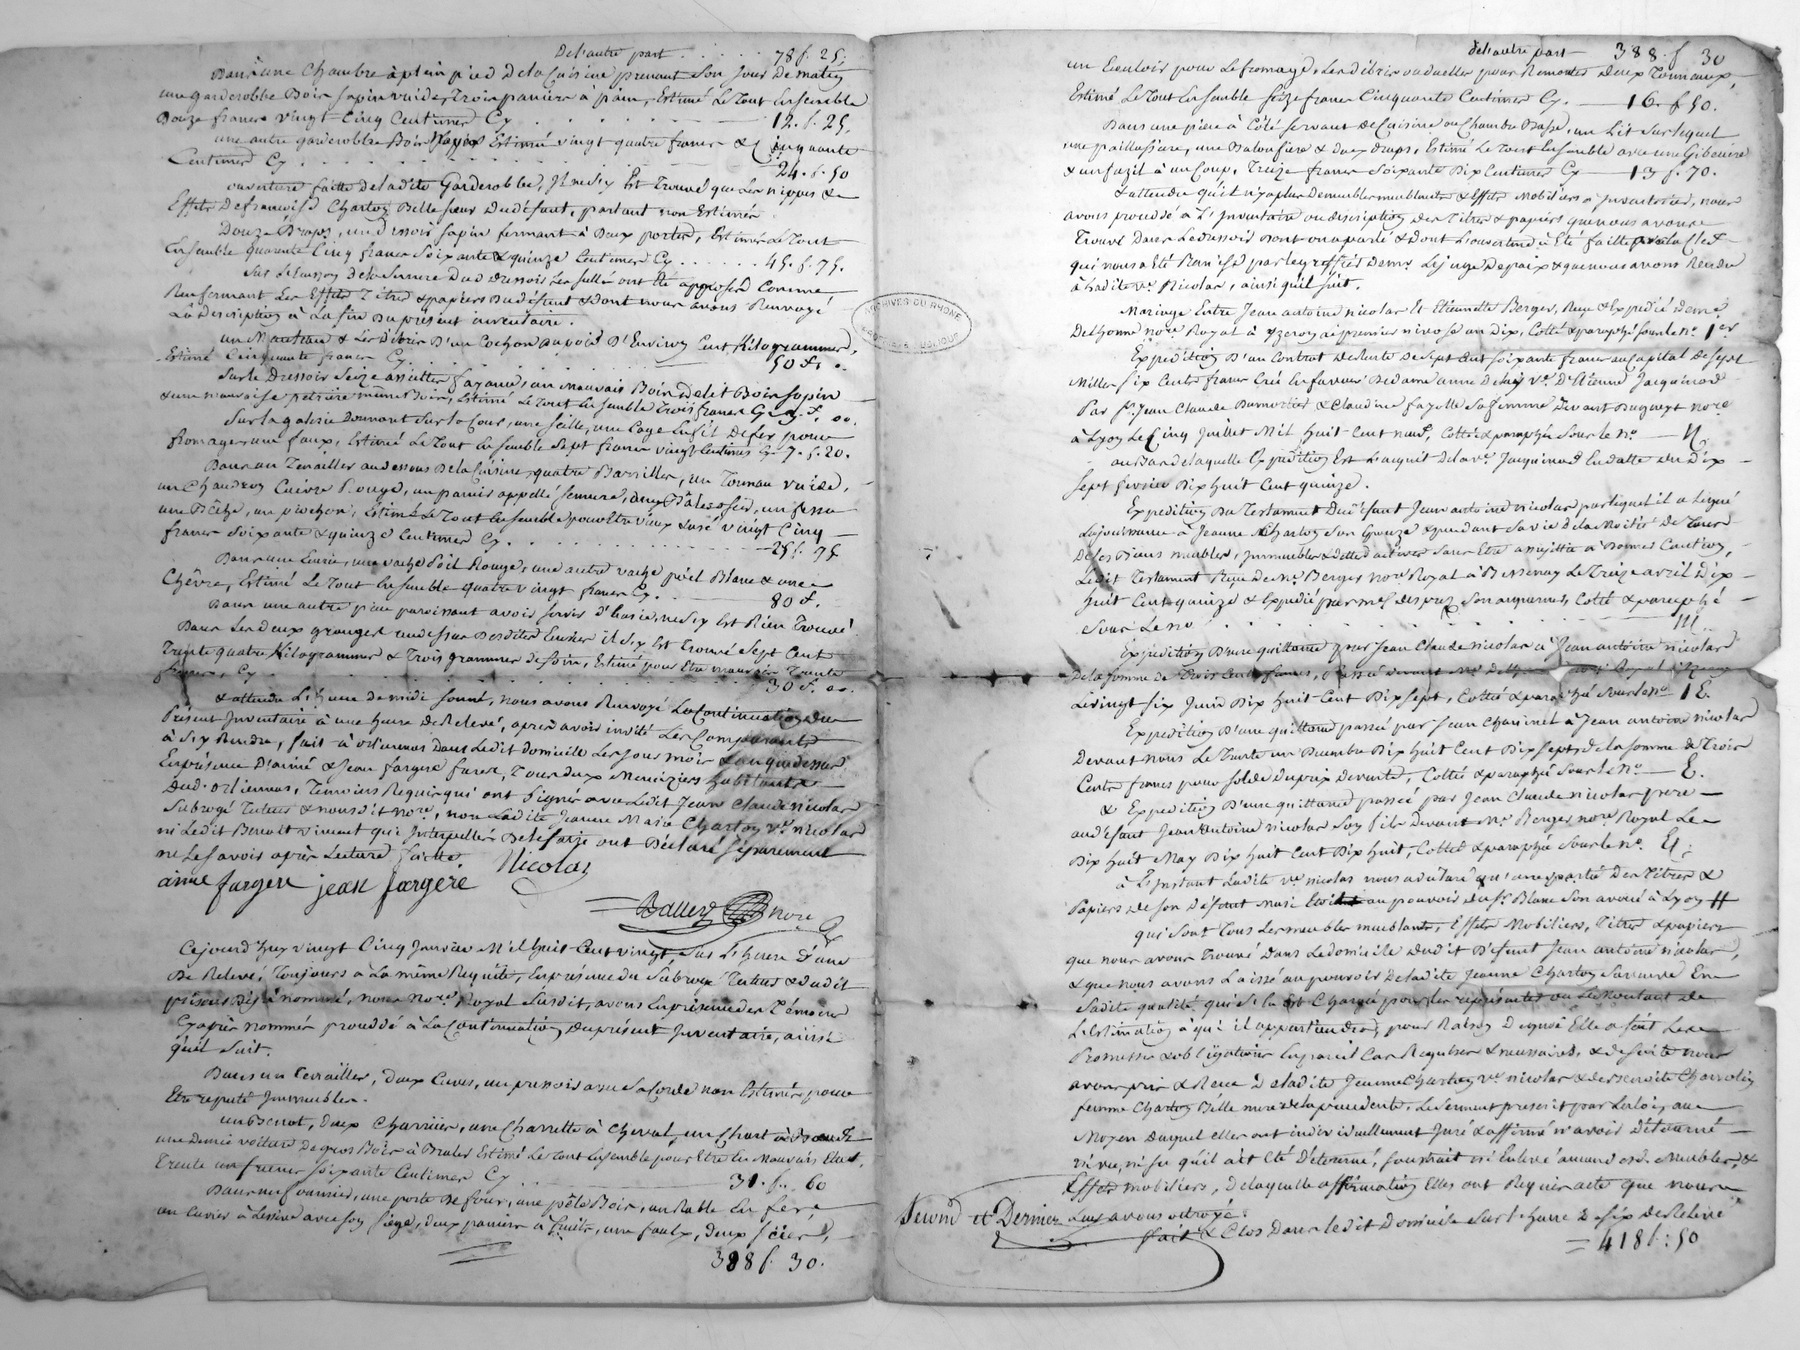 De l'autre part . . . . 78 f. 25.
Dans une Chambre à plein pied De la Cuisine prenant Son Jour De matin
une garderobbe Bois sapin vuide, Trois paniers à pain, Estimé Le Tout Ensemble
Douze francs vingt Cinq Centimes Cy . . . . 12. f. 25.
une autre garderobbe Bois Estimé vingt quatre francs & Cinquante
Centimes Cy . . . . 24. f. 50
ouverture faitte de ladite Garderobbe, Il ne s'y Est Trouvé que Les nippes &
Effets De françoise Chartoy Belle soeur Du défunt, partant non Estimés
Douze Draps, un dressoir sapin fermant à Deux portes, Estimés Le Tout
Ensemble quarante Cinq francs Soixante & quinze Centimes Cy . . . . . 45. f. 75.
Sur de la serrure Dud. dressoir Les scellé ont été apposés Comme
Renfermant Les Effets Titres & papiers Du défunt & dont nous avons Renvoyé
La Description à La fin Du présent inventaire.
un Manteau & Les Débris D'un Cochon Du poid D'Environ Cent Kilogrammes,
Estimé Cinquante francs Cy . . . . 50 f. ..
Sur le Dressoir Seize assiettes fayances, un mauvais Bois De lit Bois sapin
& une mauvaise petriere même Bois, Estimé Le Tout Ensemble Trois francs Cy 3. f. 00.
Sur la galerie Donnant Sur la Cour, une seille, une Cage En fil De fer pour
fromage, une faux, Estimé Le Tout Ensemble Sept francs vingt Centimes Cy 7. f. 20.
Dans un Tenailler au dessous De la Cuisine, quatre Barrilles, un Tonneau vuide,
un Chaudron Cuivre Rouge, un panier appellé
une Bêche, un piochon, Estimé Le Tout Ensemble vingt Cinq
francs Soixante & quinze Centimes Cy . . . . 25 f. 75
Dans une Ecurie, une vache Poil Rouge, une autre vache poil Blanc & une
Chêvre, Estimé Le Tout Ensemble quatre vingt francs Cy . . 80 f.
Dans une autre piece paroissant avoir servis d'Ecurie, ne s'y Est Rien Trouvé
Dans Les deux granges au dessus Desdites Ecuries il s'y Est trouvé Sept Cent
Trente quatre Kilogrammes & Trois grammes de foin, Estimé pour Etre mauvais Trente
francs, Cy . . . . 30 f. 00.
& attendu L'heure de midi Sonné, nous avons Renvoyé La Continuation Du
Présent Inventaire à une heure De Relevé, après avoir invité Les Comparants
à S'y Rendre, fait à ortienas Dans Ledit Domicile Les jour mois & an que dessus
En présence D'aimé & Jean fargere freres, Tous deux Menuiziers habitants
Dud. ortiennas, Temoins Requis qui ont Signés avec Ledit Jean Claude nicolas
Subrogé Tuteur & nousdit nore, non Ladite Jeanne Marie Chartoy ve nicolas
ni Ledit Benoit vivient qui Interpellés De le faire ont Déclaré Séparement
ne Le Savoir après Lecture faitte.
aimé fargere jean fargere Nicolas
nore
Cejourd'huy vingt Cinq Janvier Mil huit Cent vingt, Sur L'heure D'une
De Relevé, Toujours à La même Requête, En présence du Subrogé Tuteur & dudit
présent Déjà nommé, nous Nore Royal Susdit, avons En présence des Témoins
Cy après nommés procédé à La Continuation Du présent Inventaire, ainsi
qu'il Suit.
Dans un Tenailler, Deux Cuves, un pressoir avec Sa Corde non Estimés pour
Etre réputé Immeubles.
un Benot, Deux Charrües, une Charrette à Cheval, un Chart à
une Demie voiture De gros Bois à Bruler Estimé Le Tout Ensemble pour Etre En Mauvais Etat,
Trente un francs Soixante Centimes Cy . . . . 31. f. 60
Dans un fournier, une porte De four, une pêle Bois, un Rable En fer,
un Cuvier à Lessive avec Son Siege, Deux paniers à fruits, une faulx, Deux Scies,
388 f. 30.
ARCHIVES DU RHONE
De l'autre part 388. f 30
un Ecouloir pour Le fromage, Les débris vaduelles pour Remontes Deux Tonneaux,
Estimé Le Tout Ensemble Seize francs Cinquante Centimes Cy. — 16. f 50.
Dans une piece à Côté servant De Cuisine ou Chambre Basse, un Lit Sur lequel
une paillassse, une Balousiere & deux Draps, Estimé Le Tout Ensemble avec une Gibeciere
& un fuzil à un Coup, Treize francs Soixante Dix Centimes Cy — 13 f. 70.
& attendu qu'il n'y a plus De meubles meublants & Effets Mobiliers à Inventorier, nous
avons procédé à L'Inventaire ou description Des Titres & papiers que nous avons
Trouvé Dans Le dressoir Dont on a parlé & dont L'ouverture a Eté faitte avec la Clef
qui nous a Eté Remise par le greffier De Mr. Le juge De paix & que nous avons Rendu
à Ladite ve Nicolas, ainsi qu'il suit.
Mariage Entre Jean antoine nicolas Et Etiennette Berger, Reçu & Expédié De me
Delhorme nore Royal à Yzeron Le premier nivose an Dix, Cotté & paraphé sous le no. 1er
Expedition D'un Contrat De Rente De Sept Cent soixante francs au Capital De Sept
Milles Six Cents francs Créé En faveur De dame anne ve D'Etienne Jacquinod
Par Sr. Jean Claude Dumortier & Claudine fayolle Sa femme Devant Dugueyt nore
à Lyon Le Cinq Juillet Mil huit Cent neuf, Cotté & paraphé Sous le no. — II
au Bas De laquelle Expedition Est L'acquit De La ve. Jacquinod En datte du Dix
Sept fevrier Dix huit Cent quinze.
Expedition Du Testament Du défunt Jean antoine nicolas par lequel il a Légué
La jouissance à Jeanne Chartoy Son Epouze & pendant Sa vie De la Moitié De Tous
De ses Biens meubles, immeubles & dettes actives Sans Etre assujettie à Donner Caution,
Ledit Testament Reçu De Me Berger nore Royal à Bessenay Le Treize avril Dix
huit Cent quinze & Expédié par Me Desprez Son acquereur, Cotté & paraphé
Sous Le no . . . . III.
Expedition D'une quittance par Jean Claude nicolas à Jean antoine nicolas
De la Somme De Trois Cents francs,
Le vingt Six Juin Dix huit Cent Dix Sept, Cottée & paraphée Sous le no 1E.
Expedition D'une quittance passée par Jean Chaninet à Jean antoine nicolas
Devant nous Le Trente un Decembre Dix huit Cent Dix Sept, De la somme De Trois
Cents francs pour solde Du prix De vente, Cottée & paraphée Sous le no — E.
& Expedition D'une quittance passée par Jean Claude nicolas frere
au défunt Jean Antoine nicolas Son fils Devant Me. Berger nore Royal Le
Dix huit May Dix huit Cent Dix huit, Cottée & paraphée Sous le no.
à L'Instant Ladite ve nicolas nous a déclaré qu'une partie Des Titres &
Papiers De Son Défunt Mari au pouvoir Du Sr. Blanc Son avoué à Lyon
qui Sont Tous Les meubles meublants, Effets Mobiliers, Titres & papiers
que nous avons Trouvé Dans Le domicile Dudit Défunt Jean antoine nicolas,
& que nous avons Laissé au pouvoir De Ladite Jeanne Chartoy Sa veuve En
Sadite qualité qui S'en Est Chargé pour Les représenter ou Le Montant de
L'Estimation à qui il appartiendra, pour Raison De quoi Elle a fait Les
Promesses & obligations En pareil Cas Requises & necessaires, & de suite nous
avons pris & Reçu De Ladite Jeanne Chartoy ve nicolas & de
femme Chartoy Belle mere De la precedente, Le Serment prescrit par La loi, au
Moyen Duquel elles ont individuellement Juré & affirmé n'avoir Détourné
ni vu, ni su qu'il ait Eté Détourné, Soustrait ni Enlevé aucuns de Meubles &
Effets mobiliers, De laquelle affirmation Elles ont Requis acte que nous
Leur avons octroyé.
Second et Dernier
fait & Clos Dans ledit Domicile Sur L'heure De Six De Relevé
= 418 f. 50